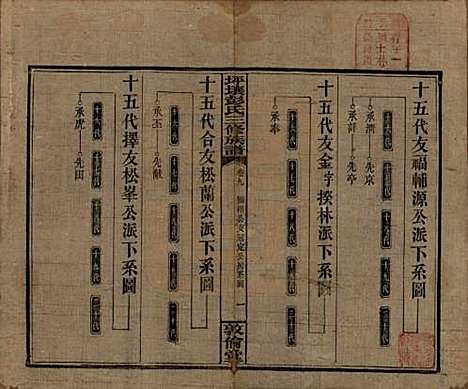 十五代友福輔源公派下系圖
十六代 十七代 十八代 十九代 二十代
承濟 先京
承訓 先亭
十五代友金字揆林派下系圖
十六代 十七代 十八代 十九代 二十代
承奉
坪壤彭氏三修族譜
卷九
一
敦倫堂
十五代合友松蘭公派下系圖
十六代 十七代 十八代 十九代 二十代
承丕 先猷
十五代擇友松峯公派下系圖
十六代 十七代 十八代 十九代 二十代
承虎 先田